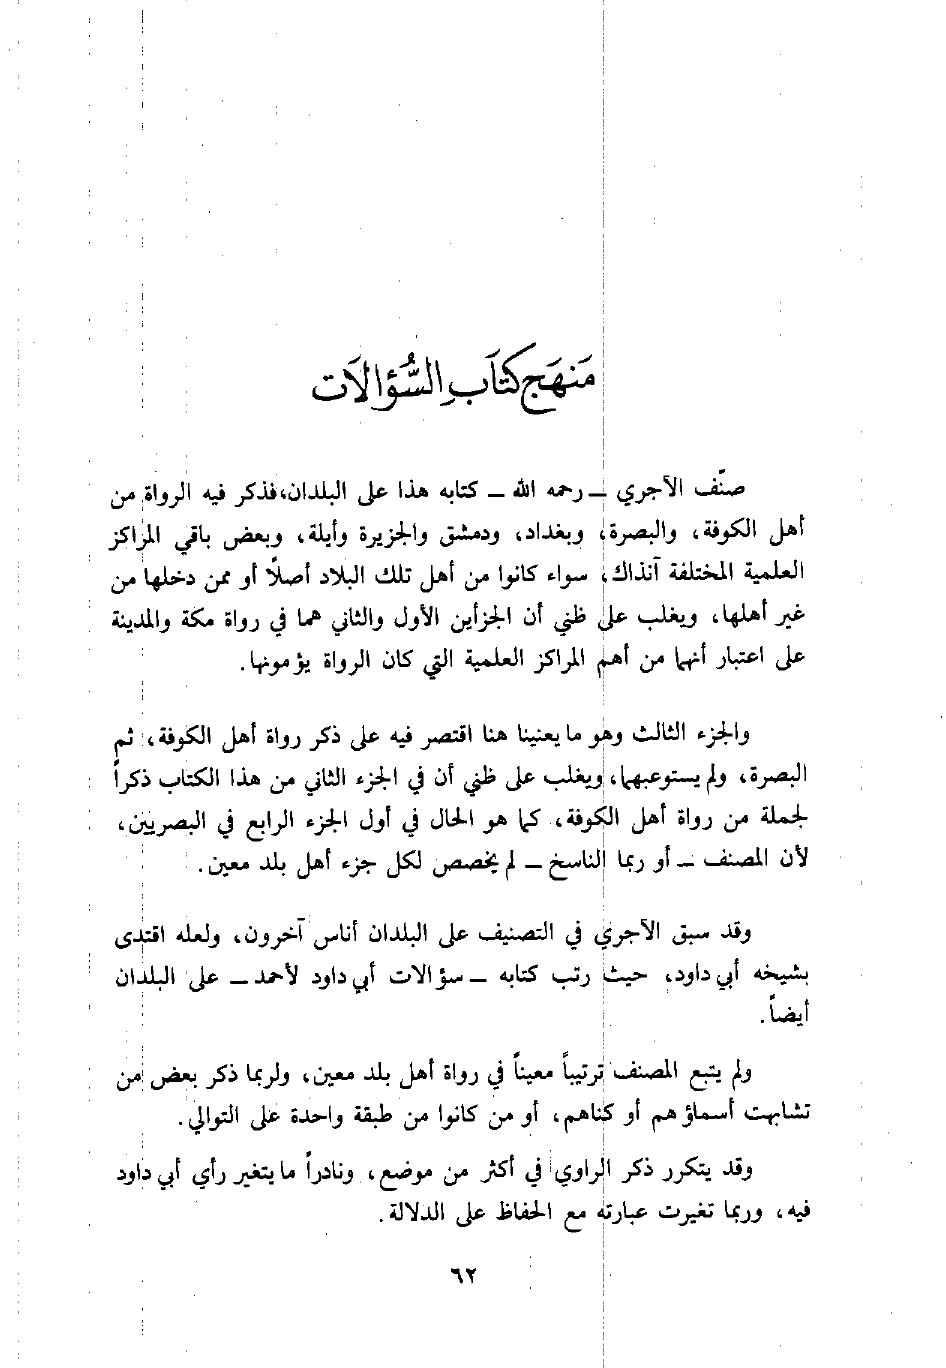 مَنهَج كتَاب السُّؤالَات
صنّف الآجري ــ رحمه الله ــ كتابه هذا على البلدان، فذكر فيه الرواة من
أهل الكوفة، والبصرة، وبغداد، ودمشق والجزيرة وأيلة، وبعض باقي المراكز
العلمية المختلفة آنذاك، سواء كانوا من أهل تلك البلاد أصلاً أو ممن دخلها من
غير أهلها، ويغلب على ظني أن الجزأين الأول والثاني هما في رواة مكة والمدينة
على اعتبار أنهما من أهم المراكز العلمية التي كان الرواة يؤمونها.
والجزء الثالث وهو ما يعنينا هنا اقتصر فيه على ذكر رواة أهل الكوفة، ثم
البصرة، ولم يستوعبهما، ويغلب على ظني أن في الجزء الثاني من هذا الكتاب ذكراً
لجملة من رواة أهل الكوفة، كما هو الحال في أول الجزء الرابع في البصريين،
لأن المصنف ــ أو ربما الناسخ ــ لم يخصص لكل جزء أهل بلد معين.
وقد سبق الآجري في التصنيف على البلدان أناس آخرون، ولعله اقتدى
بشيخه أبي داود، حيث رتب كتابه ــ سؤالات أبي داود لأحمد ــ على البلدان
أيضاً.
ولم يتبع المصنف ترتيباً معيناً في رواة أهل بلد معين، ولربما ذكر بعض من
تشابهت أسماؤهم أو كناهم، أو من كانوا من طبقة واحدة على التوالي.
وقد يتكرر ذكر الراوي في أكثر من موضع، ونادراً ما يتغير رأي أبي داود
فيه، وربما تغيرت عبارته مع الحفاظ على الدلالة.
٦٢